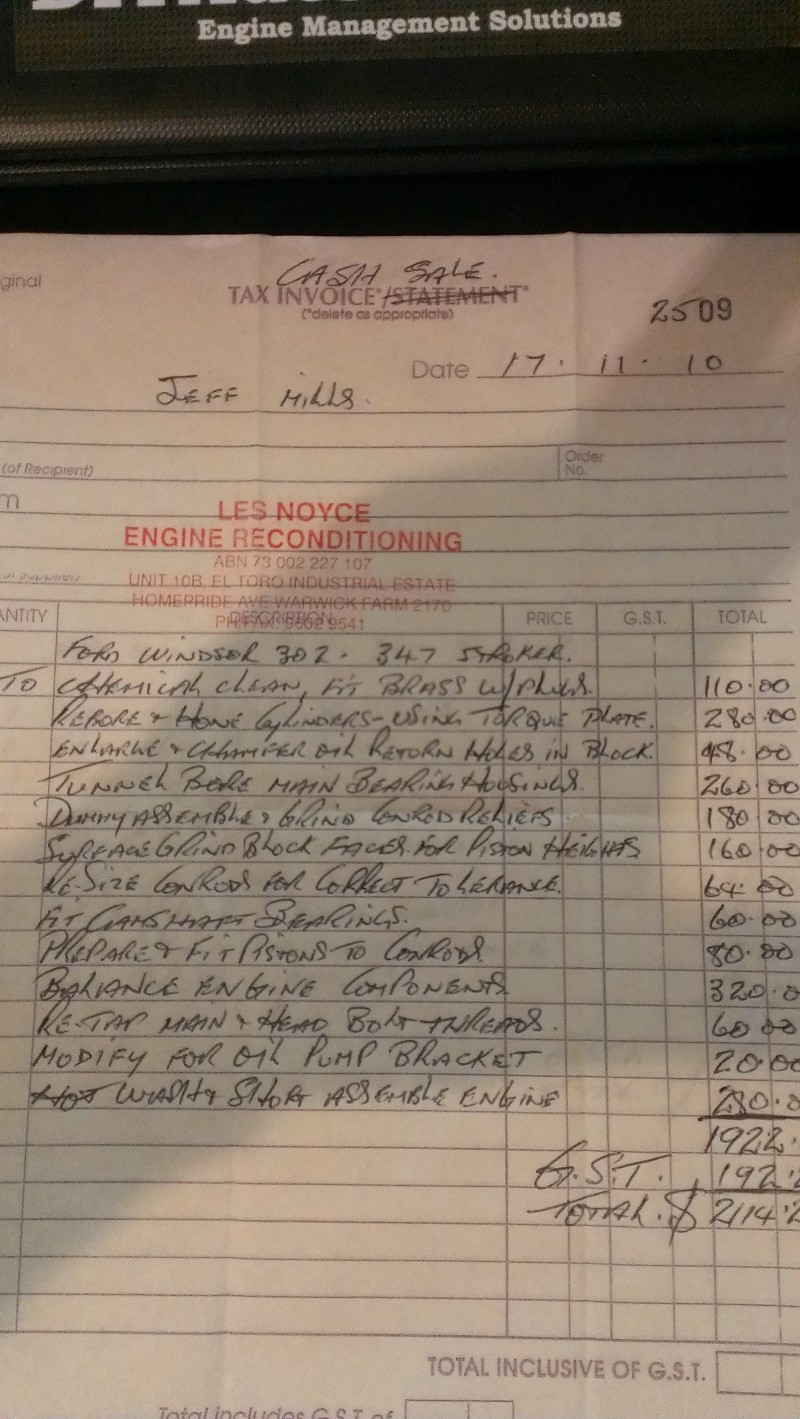 Engine Management Solutions
CASH SALE.
ginal
TAX INVOICE*/STATEMENT*
(*delete as appropriate)
2509
Date 17 . 11 . 10
JEFF MILLS.
(of Recipient)
Order
No.
m
LES NOYCE
ENGINE RECONDITIONING
ABN 73 002 227 107
UNIT 10B, EL TORO INDUSTRIAL ESTATE
HOMEPRIDE AVE WARWICK FARM 2170
ANTITY DESCRIPTION PRICE G.S.T. TOTAL
FORD WINDSOR 302 - 347 STROKER.
TO CHEMICAL CLEAN, FIT BRASS W/PLUGS. 110.00
REBORE & HONE CYLINDERS - USING TORQUE PLATE. 280.00
ENLARGE & CHAMFER OIL RETURN HOLES IN BLOCK. 48.00
TUNNEL BORE MAIN BEARING HOUSINGS. 260.00
DUMMY ASSEMBLE & GRIND CONROD RELIEFS 180.00
SURFACE GRIND BLOCK FACES FOR PISTON HEIGHTS 160.00
RE-SIZE CONRODS FOR CORRECT TOLERANCE. 64.00
FIT CAMSHAFT BEARINGS. 60.00
PREPARE & FIT PISTONS TO CONRODS 80.00
BALANCE ENGINE COMPONENTS 320.0
RE-TAP MAIN & HEAD BOLT THREADS. 60.00
MODIFY FOR OIL PUMP BRACKET 20.00
HOT WASH & SHORT ASSEMBLE ENGINE 280.0
1922.
G.S.T. 192.2
TOTAL. $ 2114.2
TOTAL INCLUSIVE OF G.S.T.
Total includes G.S.T. of